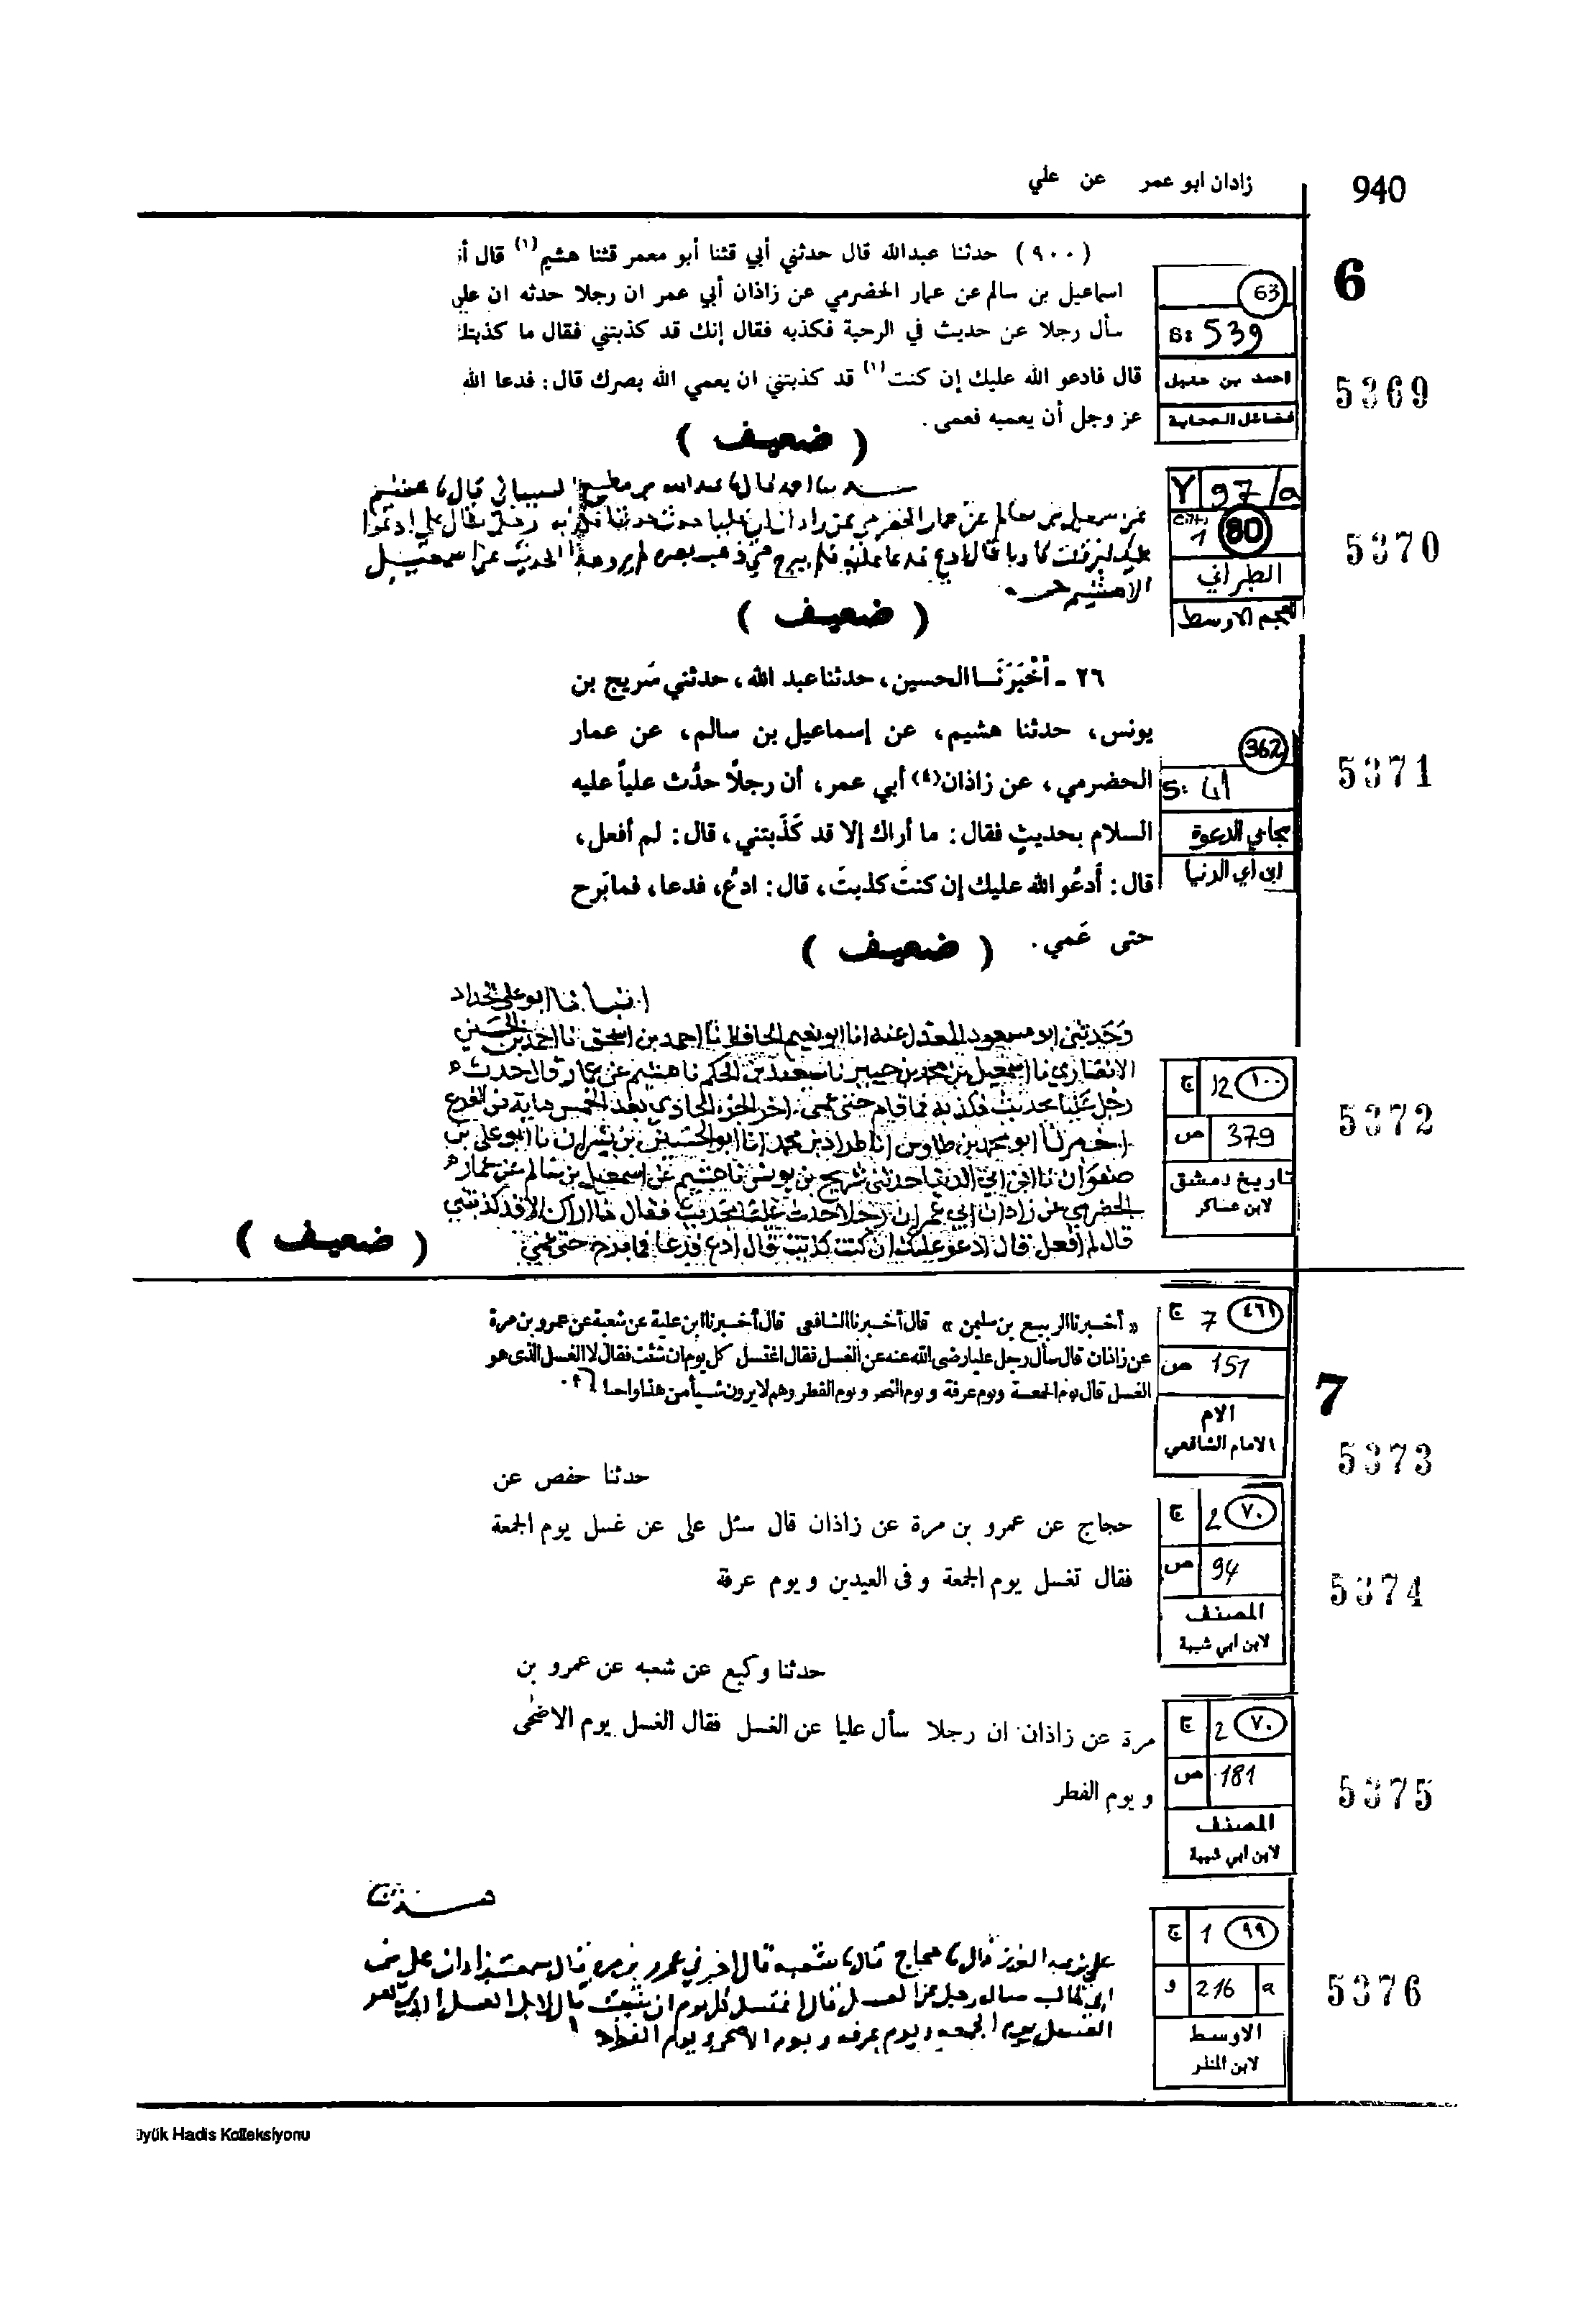 زادان ابو عمر عن علي
940
(٩٠٠) حدثنا عبدالله قال حدثني أبي قثنا أبو معمر قثنا هشيم(١) قال أ
اسماعيل بن سالم عن عمار الحضرمي عن زاذان أبي عمر ان رجلا حدثه ان علي
سأل رجلا عن حديث في الرحبة فكذبه فقال إنك قد كذبتني فقال ما كذبتك
قال فادعو الله عليك إن كنت(١) قد كذبتني ان يعمي الله بصرك قال: فدعا الله
عز وجل أن يعميه فعمى.
( ضعيف )
63
S: 539
احمد بن حنبل
فضائل الصحابة
6
5369
عليك ان كنت كاذبا قال ادع فدعا عليه فلم يبرح حتى ذهب بصره لم يرو هذا الحديث عن اسمعيل
الا هشيم
( ضعيف )
Y 97/a
Cilt: 1 80
الطبراني
المعجم الاوسط
5370
٢٦ - أَخْبَرَنَا الحسين، حدثنا عبد الله، حدثني سُريج بن
يونس، حدثنا هشيم، عن إسماعيل بن سالم، عن عمار
الحضرمي، عن زاذان(٤) أبي عمر، أن رجلًا حدَّث علياً عليه
السلام بحديثٍ فقال: ما أراك إلا قد كَذَبتني، قال: لم أفعل،
قال: أدعُو الله عليك إن كنتَ كذبتَ، قال: ادعُ، فدعا، فما بَرح
حتى عَمي.
( ضعيف )
362
S: 41
مجابي الدعوة
ابن أبي الدنيا
5371
انبأنا ابو علي الحداد
وحدثني ابو مسعود المعدل عنه انا ابو نعيم الحافظ نا احمد بن اسحق نا احمد بن الحسين
الانصاري نا اسمعيل بن محمد بن جبير نا سعيد بن الحكم نا هشيم عن عمار قال حدث
رجل عليا بحديث فكذبه فما قام حتى عمي. اخر الجزء الحادي بعد الخمس مايه من الفرع
اخبرنا ابو محمد بن طاوس انا طراد بن محمد انا ابو الحسين بن بشران نا ابو علي بن
صفوان نا ابن ابي الدنيا حدثني شريح بن يونس نا هشيم عن اسمعيل بن سالم عن عمار
الحضرمي عن زادان ابي عمر ان رجلا حدث عليا بحديث فقال ما اراك الا قد كذبتني
قال لم افعل قال ادعو عليك ان كنت كذبت قال ادع فدعا فما برح حتى عمي
( ضعيف )
ج 12 ١٠٠
ص 379
تاريخ دمشق
لابن عساكر
5372
« أخبرنا الربيع بن سليمن » قال أخبرنا الشافعي قال أخبرنا ابن علية عن شعبة عن عمرو بن مرة
عن زاذان قال سأل رجل عليا رضى الله عنه عن الغسل فقال اغتسل كل يوم ان شئت فقال لا الغسل الذى هو
الغسل قال يوم الجمعة ويوم عرفة ويوم النحر ويوم الفطر وهم لا يرون شيأ من هذا واجبا
ج 7 ٤٦١
ص 151
الام
الامام الشافعي
7
5373
حدثنا حفص عن
حجاج عن عمرو بن مرة عن زاذان قال سئل على عن غسل يوم الجمعة
فقال تغسل يوم الجمعة و فى العيدين و يوم عرفة
ج 2 ٧٠
ص 94
المصنف
لابن ابي شيبة
5374
حدثنا وكيع عن شعبه عن عمرو بن
مرة عن زاذان ان رجلا سأل عليا عن الغسل فقال الغسل يوم الاضحٰى
و يوم الفطر
ج 2 ٧٠
ص 181
المصنف
لابن ابي شيبة
5375
علي بن عبد العزيز قال نا حجاج قال نا شعبه قال اخبرني عمرو بن مره قال سمعت زادان
ابي طالب ساله رجل عن الغسل قال اغتسل كل يوم ان شيت قال لا بل الغسل الذي هو
الغسل يوم الجمعه ويوم عرفه و يوم الاضحى ويوم الفطر
ج 1 ٩٩
و 216 a
الاوسط
لابن المنذر
5376
üyük Hadis Kolleksiyonu